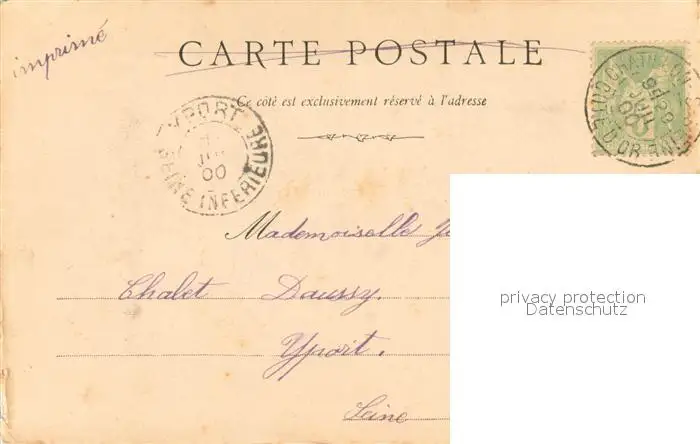 imprimé
CARTE POSTALE
Ce côté est exclusivement réservé à l'adresse
YPORT
JUIL
00
SEINE INFERIEURE
00
D'ORAN
Mademoiselle
Chalet Daussy.
Yport.
Seine
privacy protection
Datenschutz